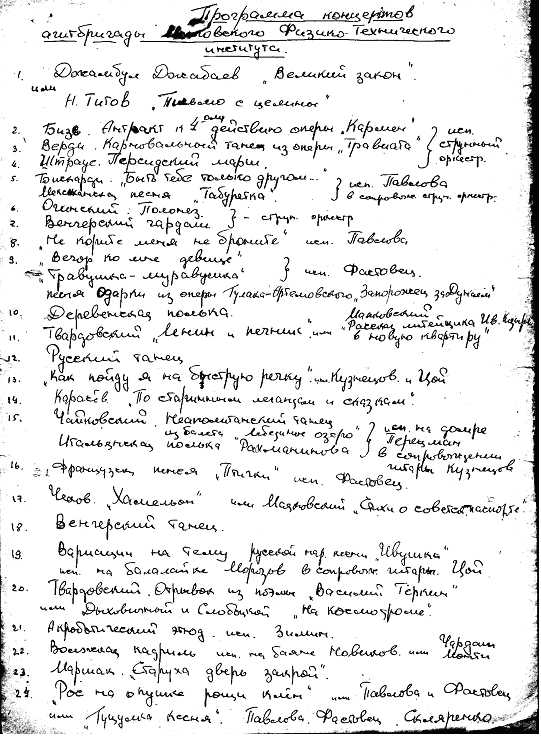 Программа концертов
агитбригады Московского Физико-Технического
института.
1. Джамбул Джабаев „Великий закон".
или
Н. Титов „Письмо с целины"
2. Бизе. Антракт к 4ому действию оперы „Кармен" } исп.
3. Верди. Карновальный танец из оперы „Травиата" струнный
4. Штраус. Персидский марш. оркестр.
5. „Быть тебе только другом..." } исп. Павлова
Мексиканск. песня „Табуретка". в сопровож струн. оркестр.
6. Огинский. Полонез.
7. Венгерский чардаш } - струн. оркестр
8. „Не корите меня не браните" исп. Павлова
9. „Вечор ко мне девице"
„Травушка-муравушка" } исп. Фастовец.
песня Одарки из оперы Гулака-Артемовского „Запорожец за Дунаем"
10. Деревенская полька. Маяковский
11. Твардовский „Ленин и печник" или „Рассказ литейщика Ив. Козырева
в новую квартиру"
12. Русский танец
13. „Как пойду я на быструю речку" исп. Кузнецов и Цой
14. Караев „По старинным легендам и сказкам".
15. Чайковский. Неаполитанский танец } исп. на домре
из балета „Лебединое озеро" Перецман
Итальянская полька „Рахманинова в сопровождении
гитары Кузнецов
16. Французск песня „Птички" исп. Фастовец.
17. Чехов. „Хамельон" или Маяковский „Стихи о советск. паспорте"
18. Венгерский танец.
19. Вариации на тему русской нар. песни „Ивушка"
исп. на балалайке Морозов в сопровож гитары. Цой
20. Твардовский. Отрывок из поэмы „Василий Тёркин"
или Дыховичный и Слободской „На космодроме".
21. Акробатический этюд. исп. Зимин.
22. Волжская кадриль исп. на баяне Новиков. или Чардаш
Монти
23. Маршак „Старуха дверь закрой".
24. „Рос на опушке рощи клён" исп Павлова и Фастовец
или „Гуцулка Ксеня". Павлова. Фастовец. Скляренко.